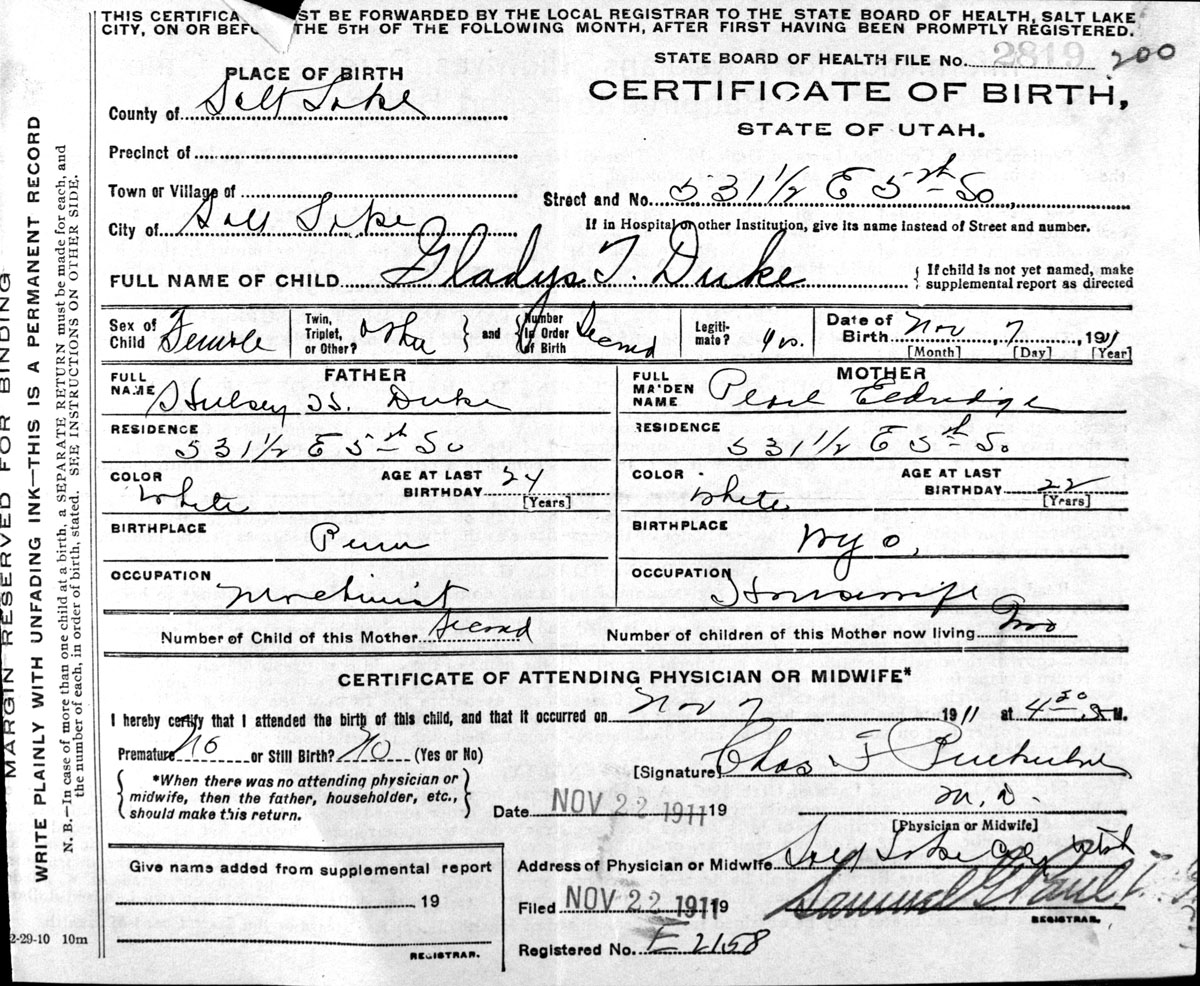 THIS CERTIFICA ST BE FORWARDED BY THE LOCAL REGISTRAR TO THE STATE BOARD OF HEALTH, SALT LAKE
CITY, ON OR BEF THE 5TH OF THE FOLLOWING MONTH, AFTER FIRST HAVING BEEN PROMPTLY REGISTERED.
STATE BOARD OF HEALTH FILE No. 2819 200
PLACE OF BIRTH
CERTIFICATE OF BIRTH,
STATE OF UTAH.
County of Salt Lake
Precinct of
Town or Village of
Street and No. 531 1/2 E 5th So
City of Salt Lake
If in Hospital or other Institution, give its name instead of Street and number.
FULL NAME OF CHILD Gladys T. Duke
{ If child is not yet named, make supplemental report as directed
Sex of Child Female
Twin, Triplet, or Other?
} and { Number in Order of Birth Second
Legitimate? yes.
Date of Birth Nov 7, 1911
[Month] [Day] [Year]
FATHER
FULL NAME Duke
RESIDENCE 531 1/2 E 5th So
COLOR White
AGE AT LAST BIRTHDAY 24
[Years]
BIRTHPLACE Penn
OCCUPATION Machinist
MOTHER
FULL MAIDEN NAME Pearl Eldridge
RESIDENCE 531 1/2 E 5th So
COLOR White
AGE AT LAST BIRTHDAY 22
[Years]
BIRTHPLACE Wyo,
OCCUPATION Housewife
Number of Child of this Mother Second
Number of children of this Mother now living Two
CERTIFICATE OF ATTENDING PHYSICIAN OR MIDWIFE*
I hereby certify that I attended the birth of this child, and that it occurred on Nov 7 1911 at 4 30 M.
Premature No or Still Birth? No (Yes or No)
{ *When there was no attending physician or midwife, then the father, householder, etc., should make this return. }
[Signature] Chas F
M.D.
[Physician or Midwife]
Date NOV 22 1911 19
Address of Physician or Midwife Salt Lake City Utah
Filed NOV 22 1911 19
Samuel G. Paul
REGISTRAR.
Registered No. E 2158
Give name added from supplemental report
19
REGISTRAR.
2-29-10 10m
MARGIN RESERVED FOR BINDING
WRITE PLAINLY WITH UNFADING INK—THIS IS A PERMANENT RECORD
N. B.—In case of more than one child at a birth, a SEPARATE RETURN must be made for each, and
the number of each, in order of birth, stated. SEE INSTRUCTIONS ON OTHER SIDE.